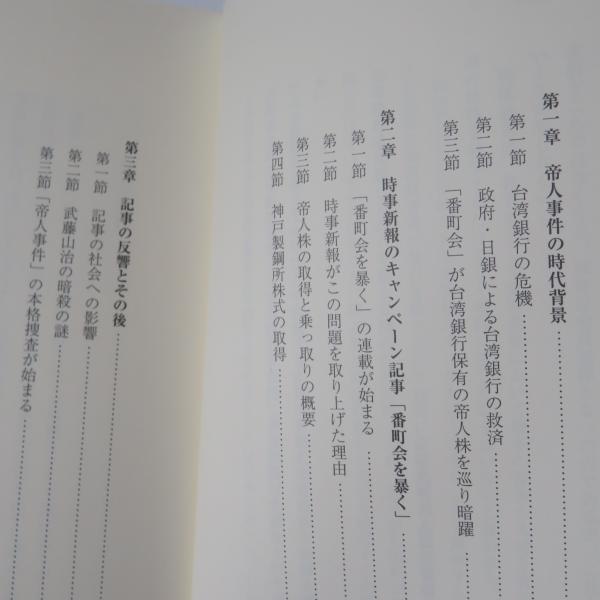 第一章 帝人事件の時代背景
第一節 台湾銀行の危機
第二節 政府・日銀による台湾銀行の救済
第三節 「番町会」が台湾銀行保有の帝人株を巡り暗躍
第二章 時事新報のキャンペーン記事「番町会を暴く」
第一節 「番町会を暴く」の連載が始まる
第二節 時事新報がこの問題を取り上げた理由
第三節 帝人株の取得と乗っ取りの概要
第四節 神戸製鋼所株式の取得
第三章 記事の反響とその後
第一節 記事の社会への影響
第二節 武藤山治の暗殺の謎
第三節「帝人事件」の本格捜査が始まる